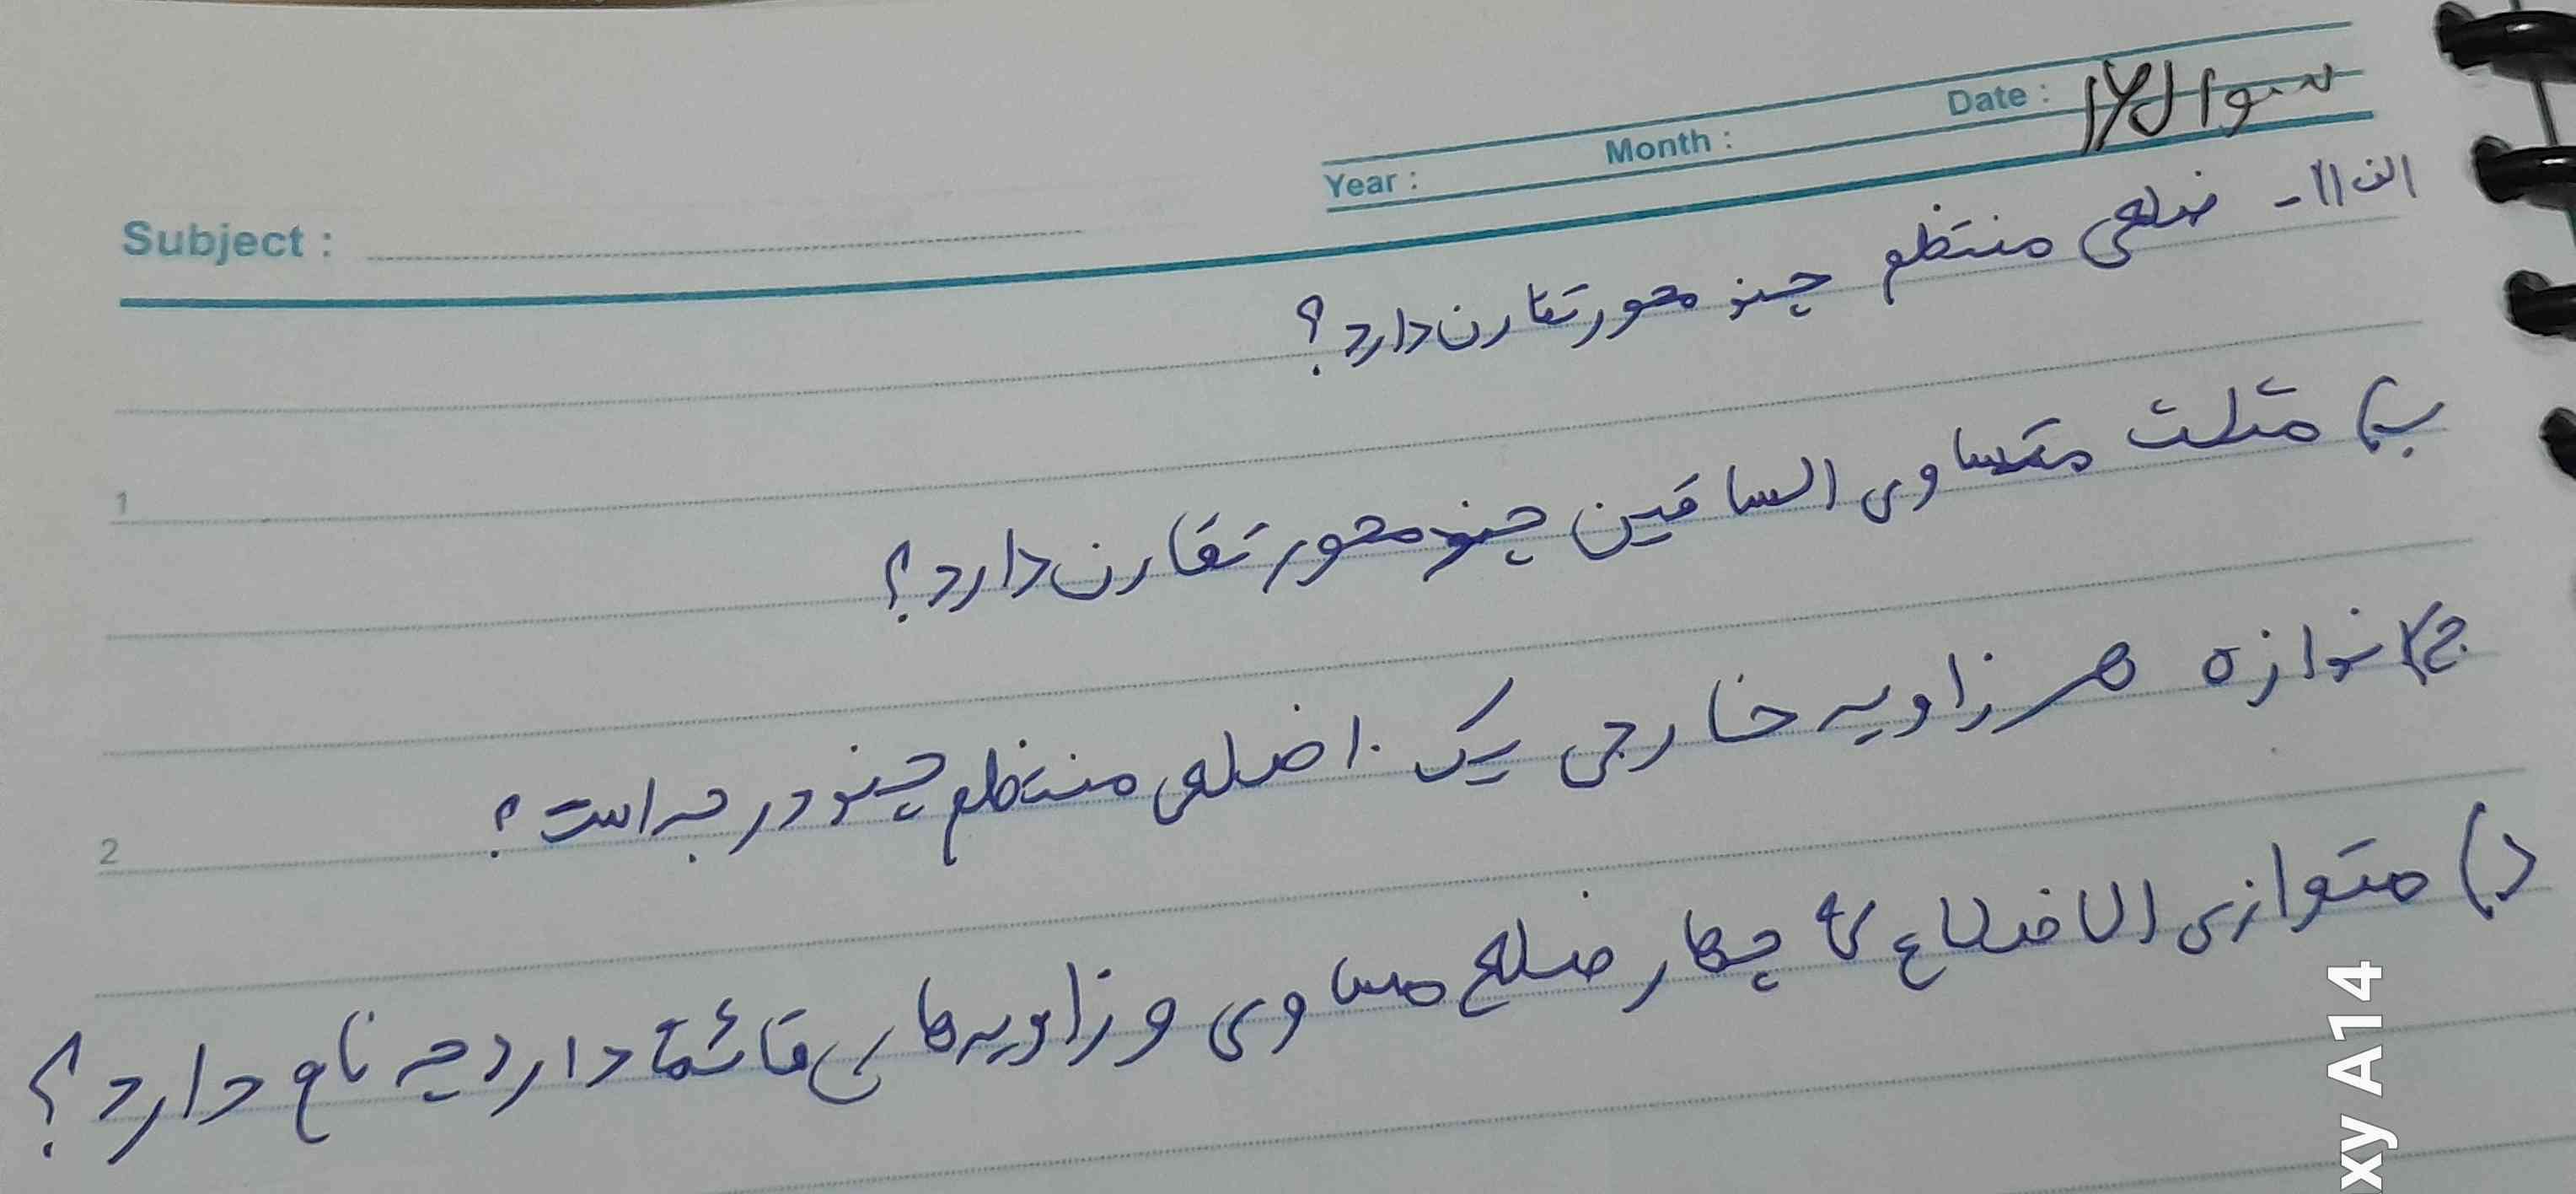 سوال ۱۲
Date :
Month :
Year :
Subject :
الف) ۱۱- ضلعی منتظم چند محور تقارن دارد؟
ب) مثلث متساوی الساقین چند محور تقارن دارد؟
1
ج) اندازه هر زاویه خارجی یک ۱۰ ضلعی منتظم چند درجه است؟
2
د) متوازی الاضلاع که چهار ضلع مساوی و زاویه‌های قائمه دارد چه نام دارد؟
xy A14